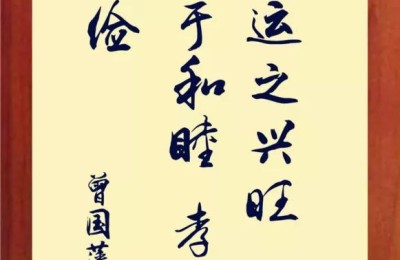 运之兴旺
于和睦 孝
俭
曾国藩